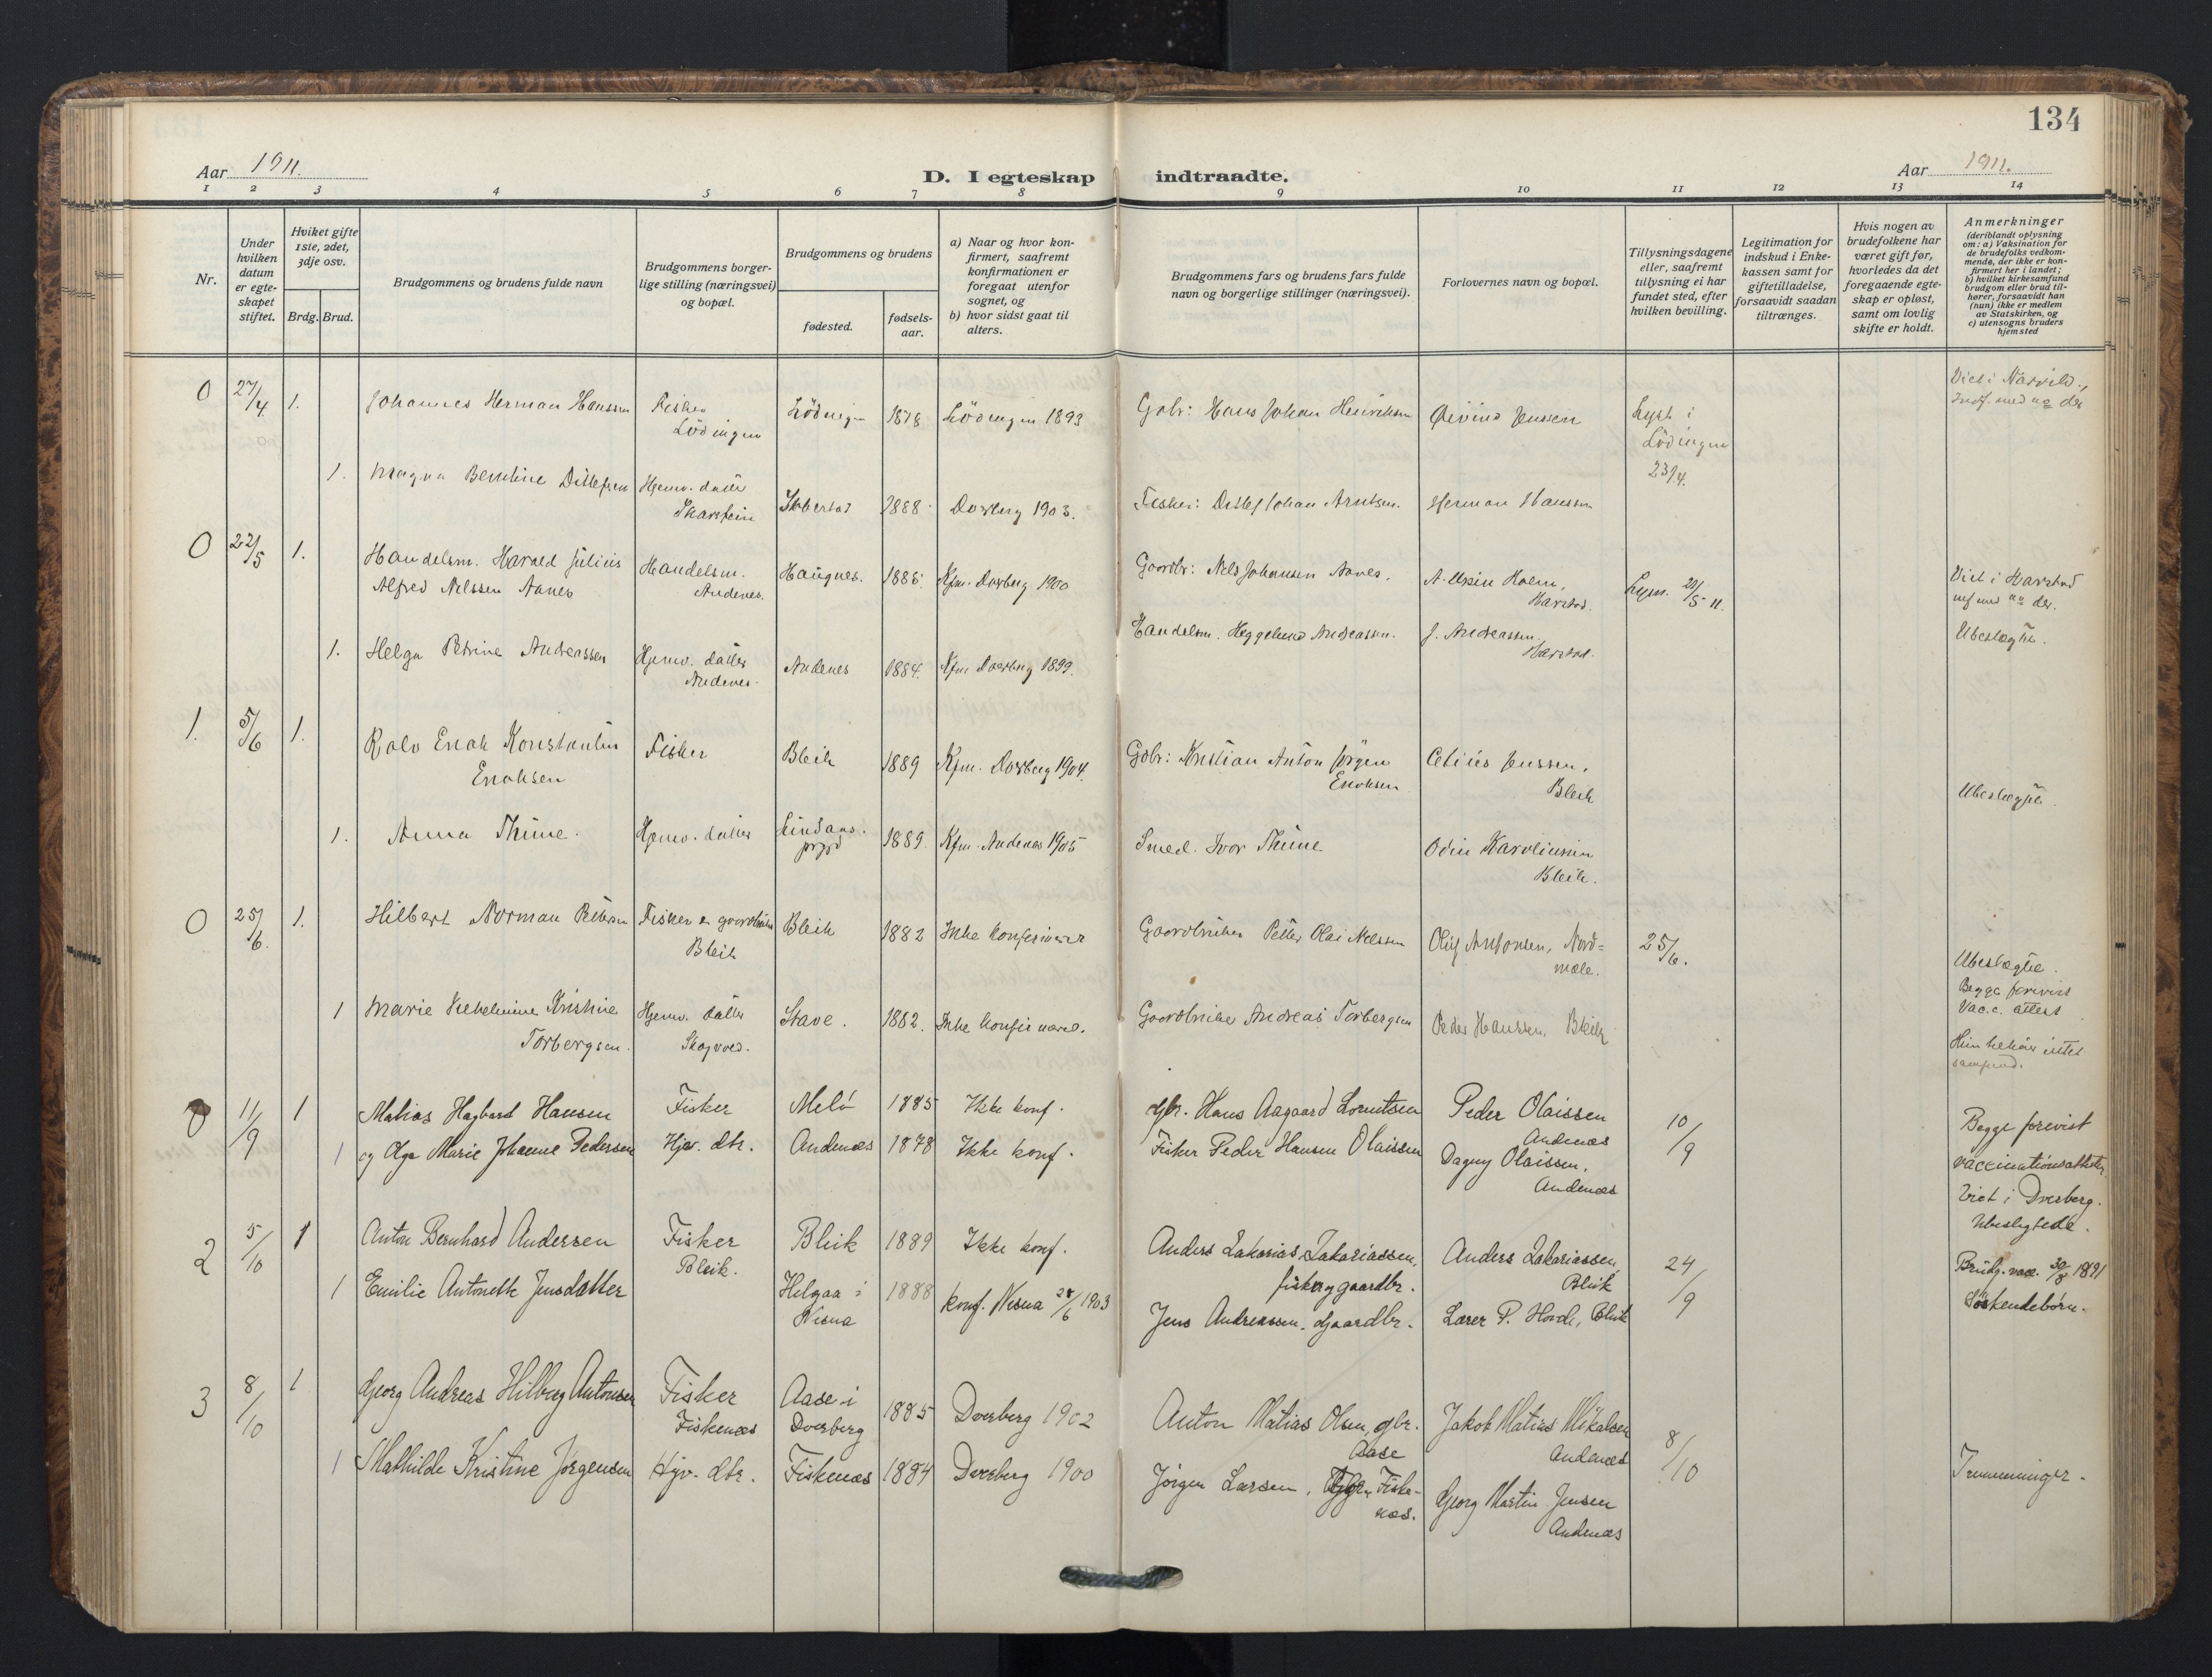 134
Aar 1911.
D. I egteskap indtraadte.
Aar 1911.
1 2 3 4 5 6 7 8 9 10 11 12 13 14
Nr.
Under hvilken datum er egteskapet stiftet.
Hviket gifte 1ste, 2det, 3dje osv.
Brdg. Brud.
Brudgommens og brudens fulde navn
Brudgommens borgerlige stilling (næringsvei) og bopæl.
Brudgommens og brudens
fødested.
fødselsaar.
a) Naar og hvor konfirmert, saafremt konfirmationen er foregaat utenfor sognet, og
b) hvor sidst gaat til alters.
Brudgommens fars og brudens fars fulde navn og borgerlige stillinger (næringsvei).
Forlovernes navn og bopæl.
Tillysningsdagene eller, saafremt tillysning ei har fundet sted, efter hvilken bevilling.
Legitimation for indskud i Enkekassen samt for giftetilladelse, forsaavidt saadan tiltrænges.
Hvis nogen av brudefolkene har været gift før, hvorledes da det foregaaende egteskap er opløst, samt om lovlig skifte er holdt.
Anmerkninger
(deriblandt oplysning om: a) Vaksination for de brudefolks vedkommende, der ikke er konfirmert her i landet; b) hvilket kirkesamfund brudgom eller brud tilhører, forsaavidt han (hun) ikke er medlem av Statskirken, og c) utensogns bruders hjemsted
0 27/4 1. Johannes Herman Hanssen Fisker Lödingen Lödingen 1878 Lödingen 1893 Gbr: Hans Johan Henriksen Øivind Jenssen Lyst i Lödingen 23/4.
1. Magna Berntine Ditlefsen Hjemv. datter Skarstein 1888 Dverberg 1903. Fisker: Ditlef Johan Arntsen. Herman Hanssen
0 22/5 1. Handelsm. Harald Julius Alfred Nilssen Aanes Handelsm. Andenes. Haugnes. 1885 Kfm. Dverberg 1900 Gaardbr: Nels Johansen Aanes. Holm, Harstad. 21/5 11. Viet i Harstad
Ubeslægtee.
1. Helga Petrine Andreassen Hjemv. datter Andenes. Andenes 1884. Kfm Dverberg 1899. Handelsm. Heggelund Andreassen. J. Andreassen, Harstad.
1. 5/6 1. Rolv Enok Konstantin Enoksen Fisker Bleik 1889 Kfm. Dverberg 1904. Gbr: Kristian Anton Jörgen Enoksen Jenssen, Bleik
Ubeslegtee.
1. Anna Thime. Hjemv. datter 1889. Kfm. Andenes 1905 Smed. Ivor Thime Odin Karolinsen Bleik.
0 25/6. 1. Hilbert Norman Petersen Fisker & gaardbruker Bleik Bleik 1882 Ikke konfirmeret Gaardbruker Petter Olai Nelssen Oluf Antonsen, Nordmæle. 25/6. Ubeslægtee. Begge forevist Vacc. attest
1 Marie Vilhelmine Kristine Torbergsen. Hjemv. datter Skogvold. Stave. 1882. Ikke konfirmeret. Gaardbruker Andreas Torbergsen Peder Hanssen, Bleik
0 11/9 1 Matias Hagbart Hansen Fisker Melö 1885 Ikke konf. Gbr. Hans Aagaard Lorntsen Peder Olaissen Andenæs 10/9 Begge forevist vaccinationsattester.
Viet i Dverberg.
Ubeslegtede.
1 og Olga Marie Johanne Pedersen Hjv. dtr. Andenæs 1878 Ikke konf. Fisker Peder Hansen Olaissen Dagny Olaissen, Andenæs
2 5/10 1 Anton Bernhard Andersen Fisker Bleik. Bleik 1889 Ikke konf. Anders Zakarias Zakariassen, fisker og gaardbr. Anders Zakariassen, Bleik 24/9 Brudg. vacc. 30/8 1891
Söskendebörn.
1 Emilie Antonette Jensdatter Helgaa i Nesna 1888 konf. Nesna 28/6 1903 Jens Andreassen. Gaardbr. Lærer P. Hovde, Bleik
3 8/10 1 Georg Andreas Hilberg Antonsen Fisker Fiskenæs Aase i Dverberg 1885 Dverberg 1902 Anton Matias Olsen, gbr. Aase Jakob Matias Mikalsen Andenæs 8/10
1 Mathilde Kristine Jørgensen Hjv. dtr. Fiskenæs 1884 Dverberg 1900 Jörgen Larsen, Gbr. Fiskenæs. Georg Martin Jensen Andenæs Tremenninger.